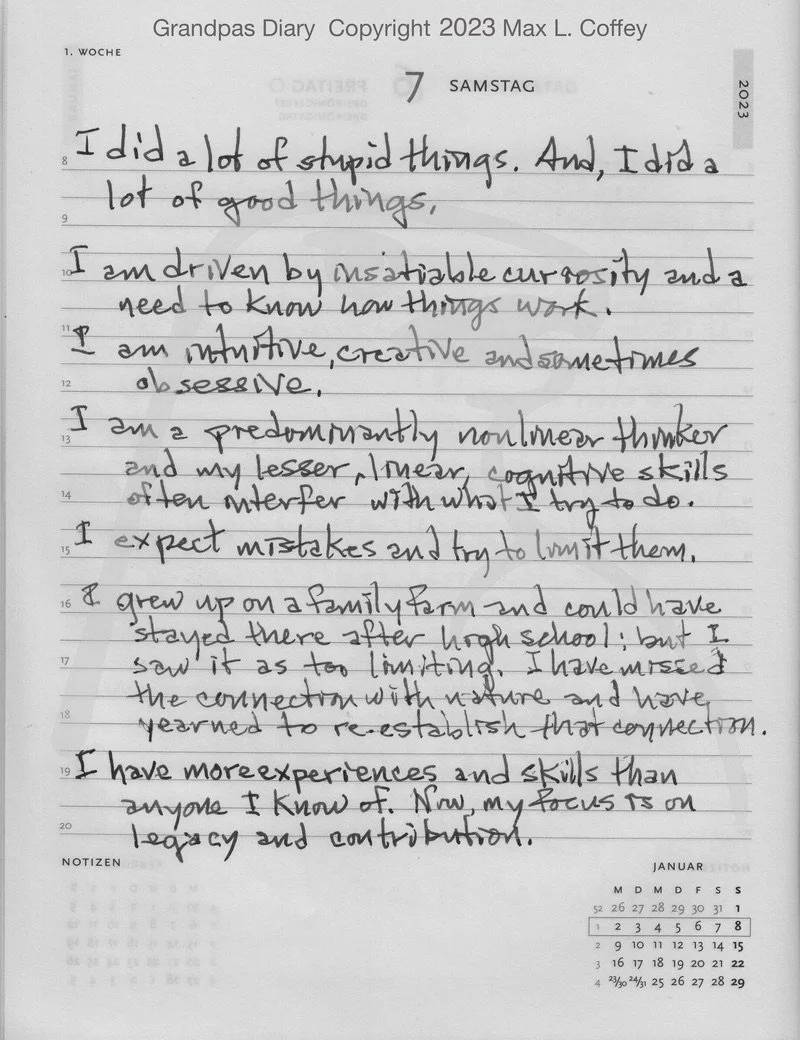 Grandpas Diary Copyright 2023 Max L. Coffey
1. WOCHE
7 SAMSTAG
2023
8 I did a lot of stupid things. And, I did a
lot of good things.
9
10 I am driven by insatiable curiosity and a
need to know how things work.
11 I am intuitive, creative and sometimes
12 obsessive.
13 I am a predominantly nonlinear thinker
and my lesser, linear, cognitive skills
14 often interfer with what I try to do.
15 I expect mistakes and try to limit them.
16 I grew up on a family farm and could have
stayed there after high school; but I
17 saw it as too limiting. I have missed
the connection with nature and have
18 yearned to re-establish that connection.
19 I have more experiences and skills than
anyone I know of. Now, my focus is on
20 legacy and contribution.
NOTIZEN
JANUAR
M D M D F S S
52 26 27 28 29 30 31 1
1 2 3 4 5 6 7 8
2 9 10 11 12 13 14 15
3 16 17 18 19 20 21 22
4 23/30 24/31 25 26 27 28 29